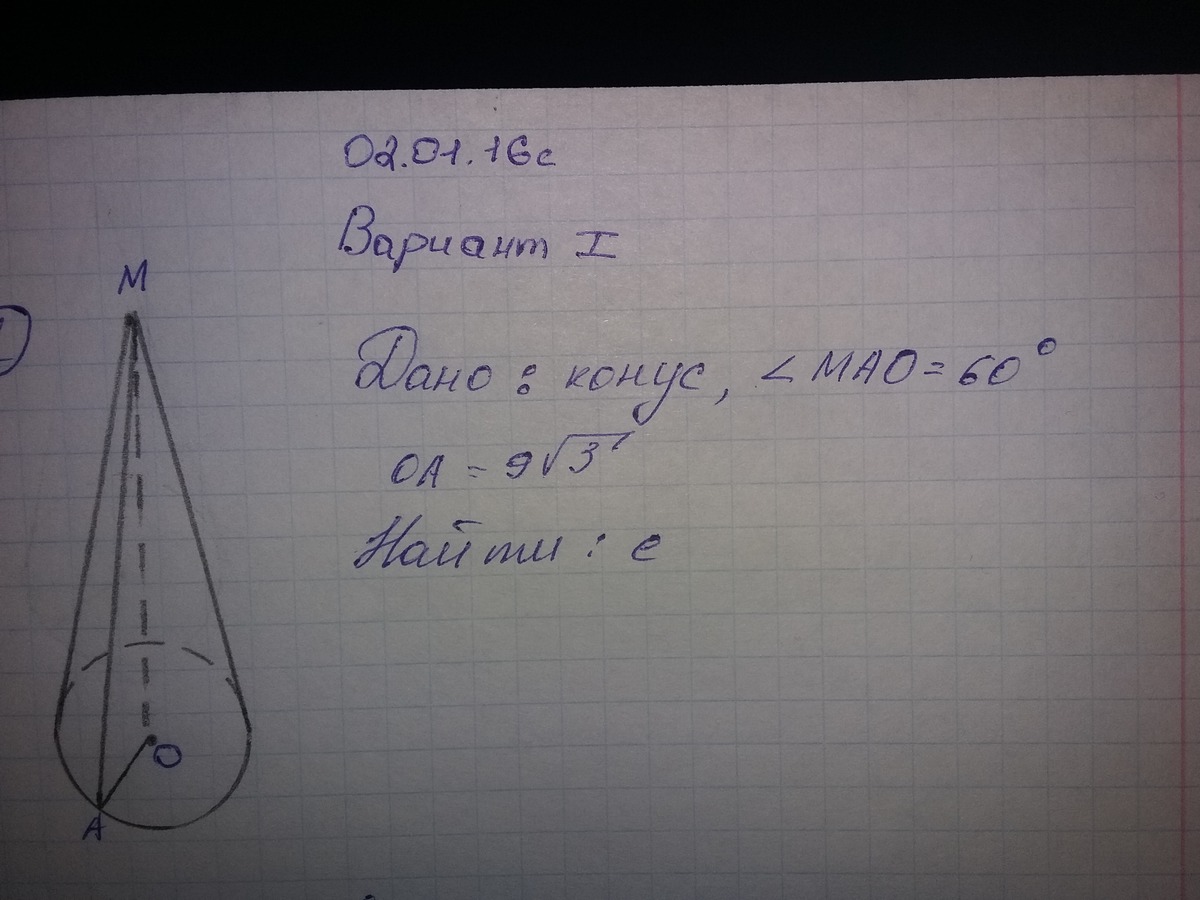 02.01.16г
Вариант I
M
Дано: конус, ∠MAO=60°
OA = 9√3
Найти: e
O
A